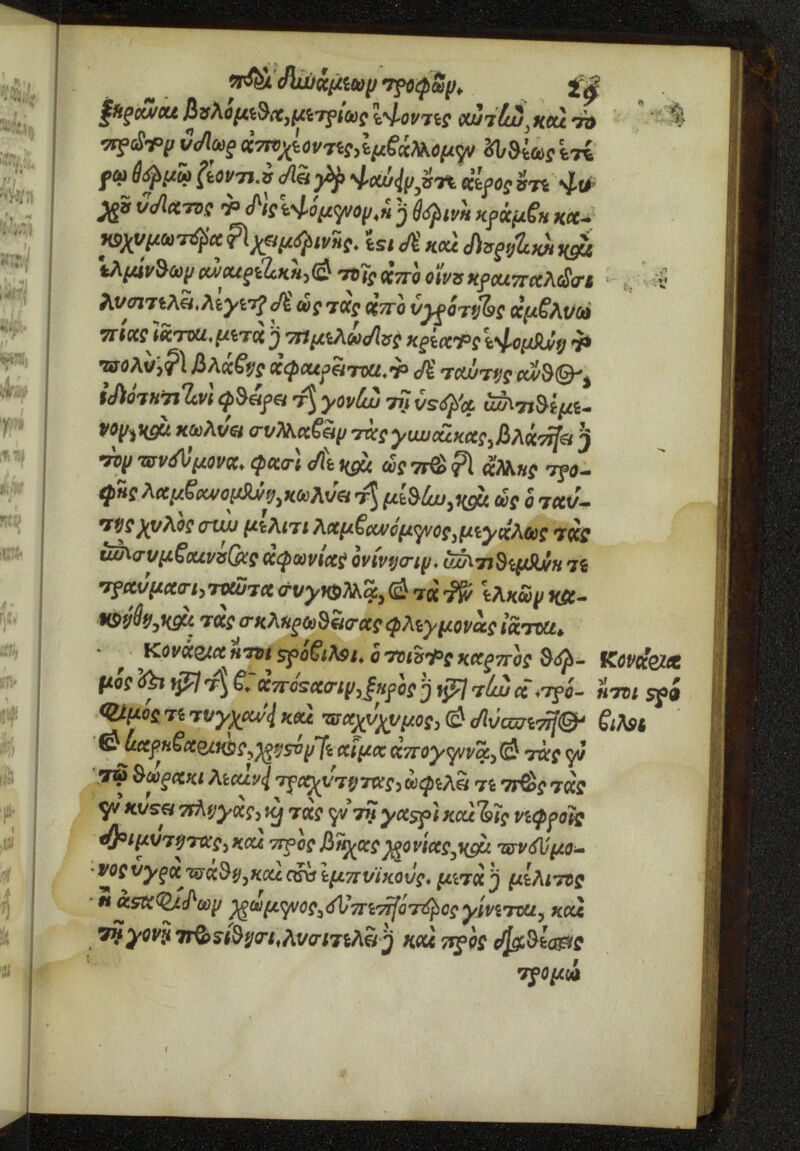 περὶ δυνάμεων τροφῶν. 29
ξηρᾶναι βουλόμεθα, μετρίως ἕψοντες αὐτὴν, καὶ τὸ
πρῶτον ὕδωρ ἀποχέοντες, ἐμβάλλομεν εὐθέως ἑτέ
ρῳ θερμῷ ζέοντι. οὐ δεῖ γὰρ ψαύειν, οὔτε ἀέρος οὔτε ψυ
χροῦ ὕδατος τὸ δὶς ἑψόμενον. ἡ δὲ θερινὴ κράμβη κα-
κοχυμωτέρα τῆς χειμερινῆς. ἔστι δὲ καὶ διουρητικὴ καὶ
ἑλμίνθων ἀναιρετικὴ, καὶ τοῖς ἀπὸ οἴνου κραιπαλῶσι
λυσιτελεῖ. λέγεται δὲ ὡς τὰς ἀπὸ ὑγρότητος ἀμβλυω
πίας ἰᾶται. μετὰ δὲ πιμελώδους κρέατος ἑψομένη τὸ
πολὺ, τῆς βλάβης ἀφαιρεῖται. τὸ δὲ ταύτης ἄνθος,
ἰδιότητί τινι φθείρει τὴν γονὴν τῇ ὑστέρᾳ ἐπιτιθέμε-
νον, καὶ κωλύει συλλαβεῖν τὰς γυναῖκας, βλάπτει δὲ
τὸν πνεύμονα. φασὶ δὲ καὶ ὡς πρὸ τῆς ἄλλης τρο-
φῆς λαμβανομένη, κωλύει τὴν μέθην, καὶ ὡς ὁ ταύ-
της χυλὸς σὺν μέλιτι λαμβανόμενος, μεγάλως τὰς
ἐπισυμβαινούσας ἀφωνίας ὀνίνησιν. ἐπιτιθεμένη τε
τραύμασι, ταῦτα συγκολλᾷ, καὶ τὰ τῶν ἑλκῶν κα-
κοήθη, καὶ τὰς σκληρωθείσας φλεγμονὰς ἰᾶται.
Κονάρια ἤτοι στρόβιλοι. ὁ τοιοῦτος καρπὸς θερ-
μός ἐστι κατὰ τὴν β. ἀπόστασιν, ξηρὸς δὲ κατὰ τὴν α. τρό-
φιμός τε τυγχάνει καὶ παχύχυμος, καὶ δύσπεπτος
καὶ καρηβαρικὸς, χρηστόν τε αἷμα ἀπογεννᾷ, καὶ τὰς ἐν
τῷ θώρακι λεαίνει τραχύτητας, ὠφελεῖ τε πρὸς τὰς
ἐν κύστει πληγὰς, καὶ τὰς ἐν τῇ γαστρὶ καὶ τοῖς νεφροῖς
δριμύτητας, καὶ πρὸς βῆχας χρονίας, καὶ πνεύμο-
νος ὑγρὰ πάθη, καὶ πρὸς ἐμπυϊκούς. μετὰ δὲ μέλιτος
ἢ ἀσταφίδων χρώμενος, εὐπεπτότερος γίνεται, καὶ
τῇ γονῇ προστίθησι. λυσιτελεῖ δὲ καὶ πρὸς διαθέσεις
τρομώ
Κονάρια
ἤτοι στρό
βιλοι